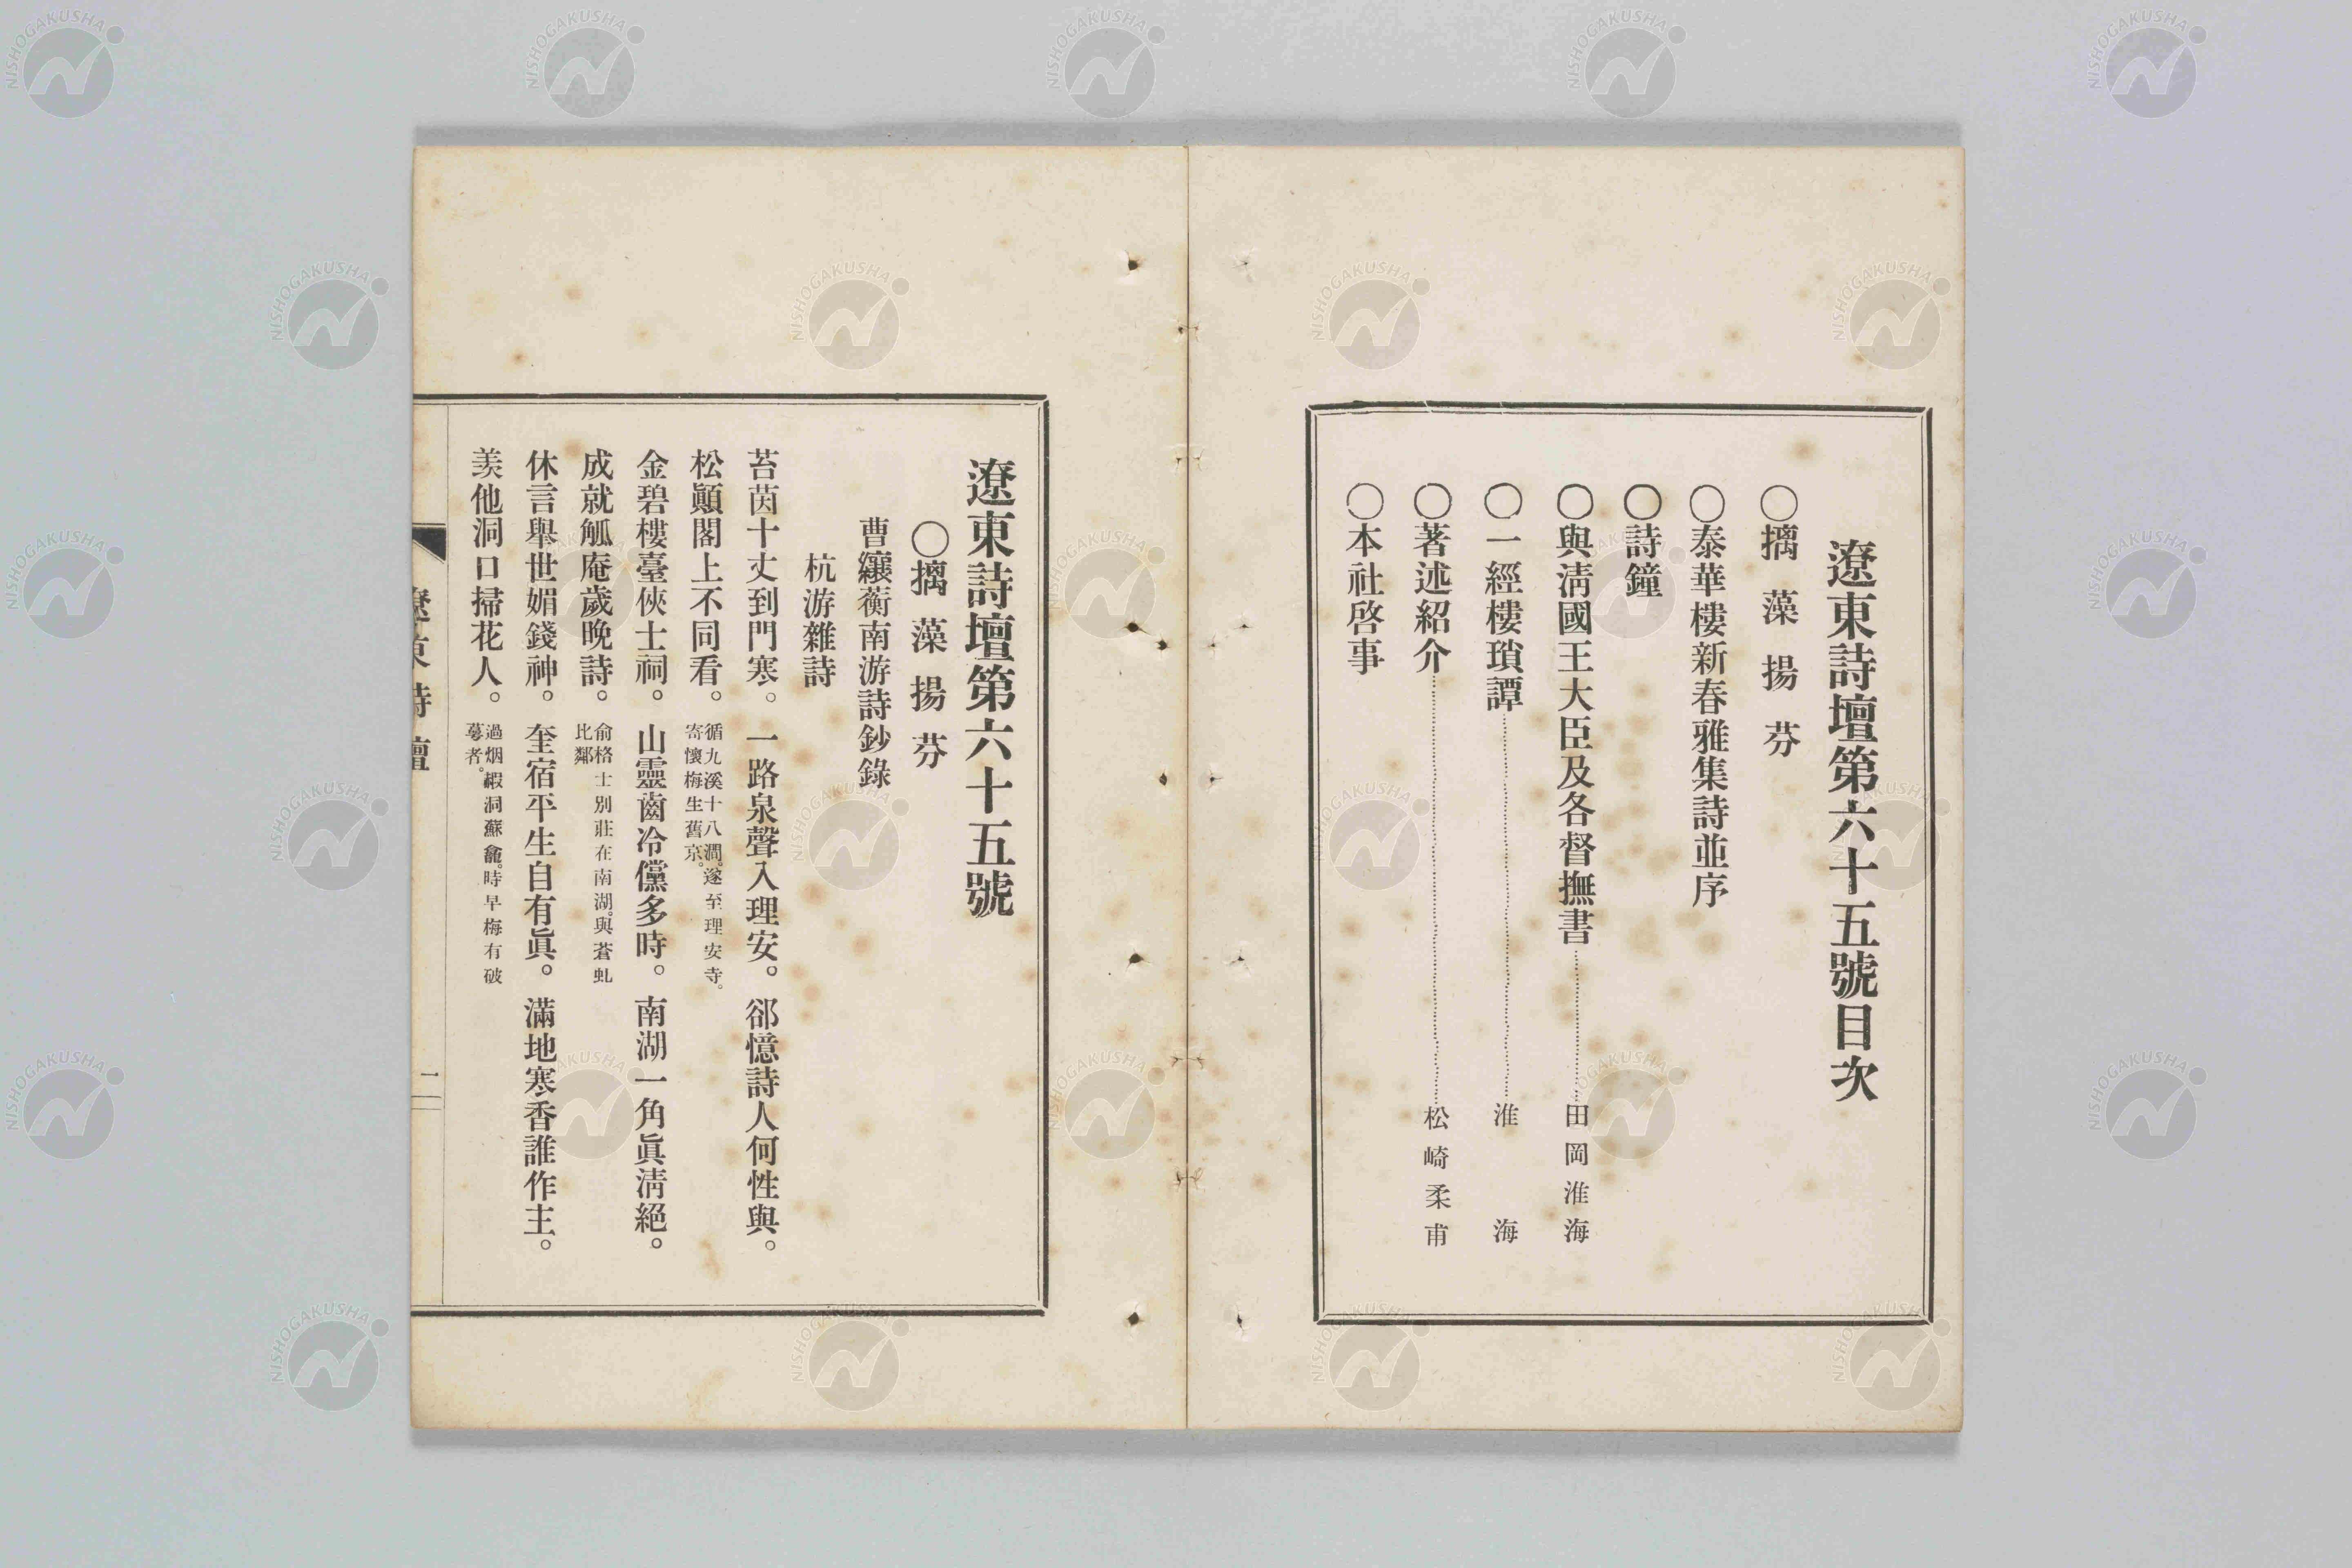 遼東詩壇第六十五號目次
○摛藻揚芬
○泰華樓新春雅集詩並序
○詩鐘
○與淸國王大臣及各督撫書 田岡淮海
○一經樓瑣譚 淮海
○著述紹介 松崎柔甫
○本社啓事
遼東詩壇第六十五號
○摛藻揚芬
曹纕蘅南游詩鈔錄
杭游雜詩
苔茵十丈到門寒。一路泉聲入理安。郤憶詩人何性與。
松顚閣上不同看。循九溪十八澗。遂至理安寺。
寄懷梅生舊京。
金碧樓臺俠士祠。山靈齒冷儻多時。南湖一角眞淸絕。
成就觚庵歲晚詩。俞格士別莊在南湖。與蒼虬
比鄰
休言舉世媚錢神。奎宿平生自有眞。滿地寒香誰作主。
羨他洞口掃花人。過烟霞洞蘇龕。時早梅有破
萼者。
遼東詩壇
一
NISHOGAKUSHA